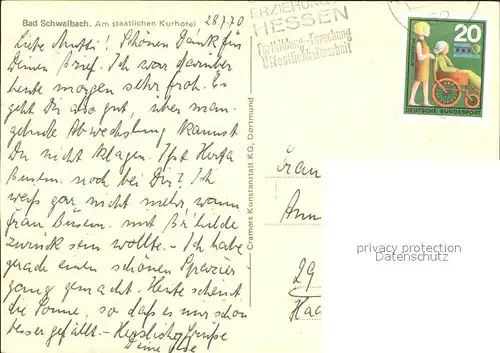 Bad Schwalbach. Am staatlichen Kurhotel
28.7.70
Liebe Mutti! Schönen Dank für
Deinen Brief. Ich war darüber
heute morgen sehr froh. Es
geht Dir also gut, über man-
gelnde Abwechslung kannst
Du nicht klagen. Ist Herta
noch bei Dir? Ich
weiß gar nicht mehr, wann
Frau mit
zurück sein wollte. - Ich habe
gerade einen schönen Spazier
gang gemacht. Heute scheint
die Sonne, so daß es mir schon
besser gefällt. - Herzliche Grüße
Deine
Cramers Kunstanstalt KG, Dortmund
ERZIEHUNG
HESSEN
Fortbildung-Forschung
Öffentlichkeitsarbeit
20
DEUTSCHE BUNDESPOST
Frau
Ann
29
privacy protection
Datenschutz